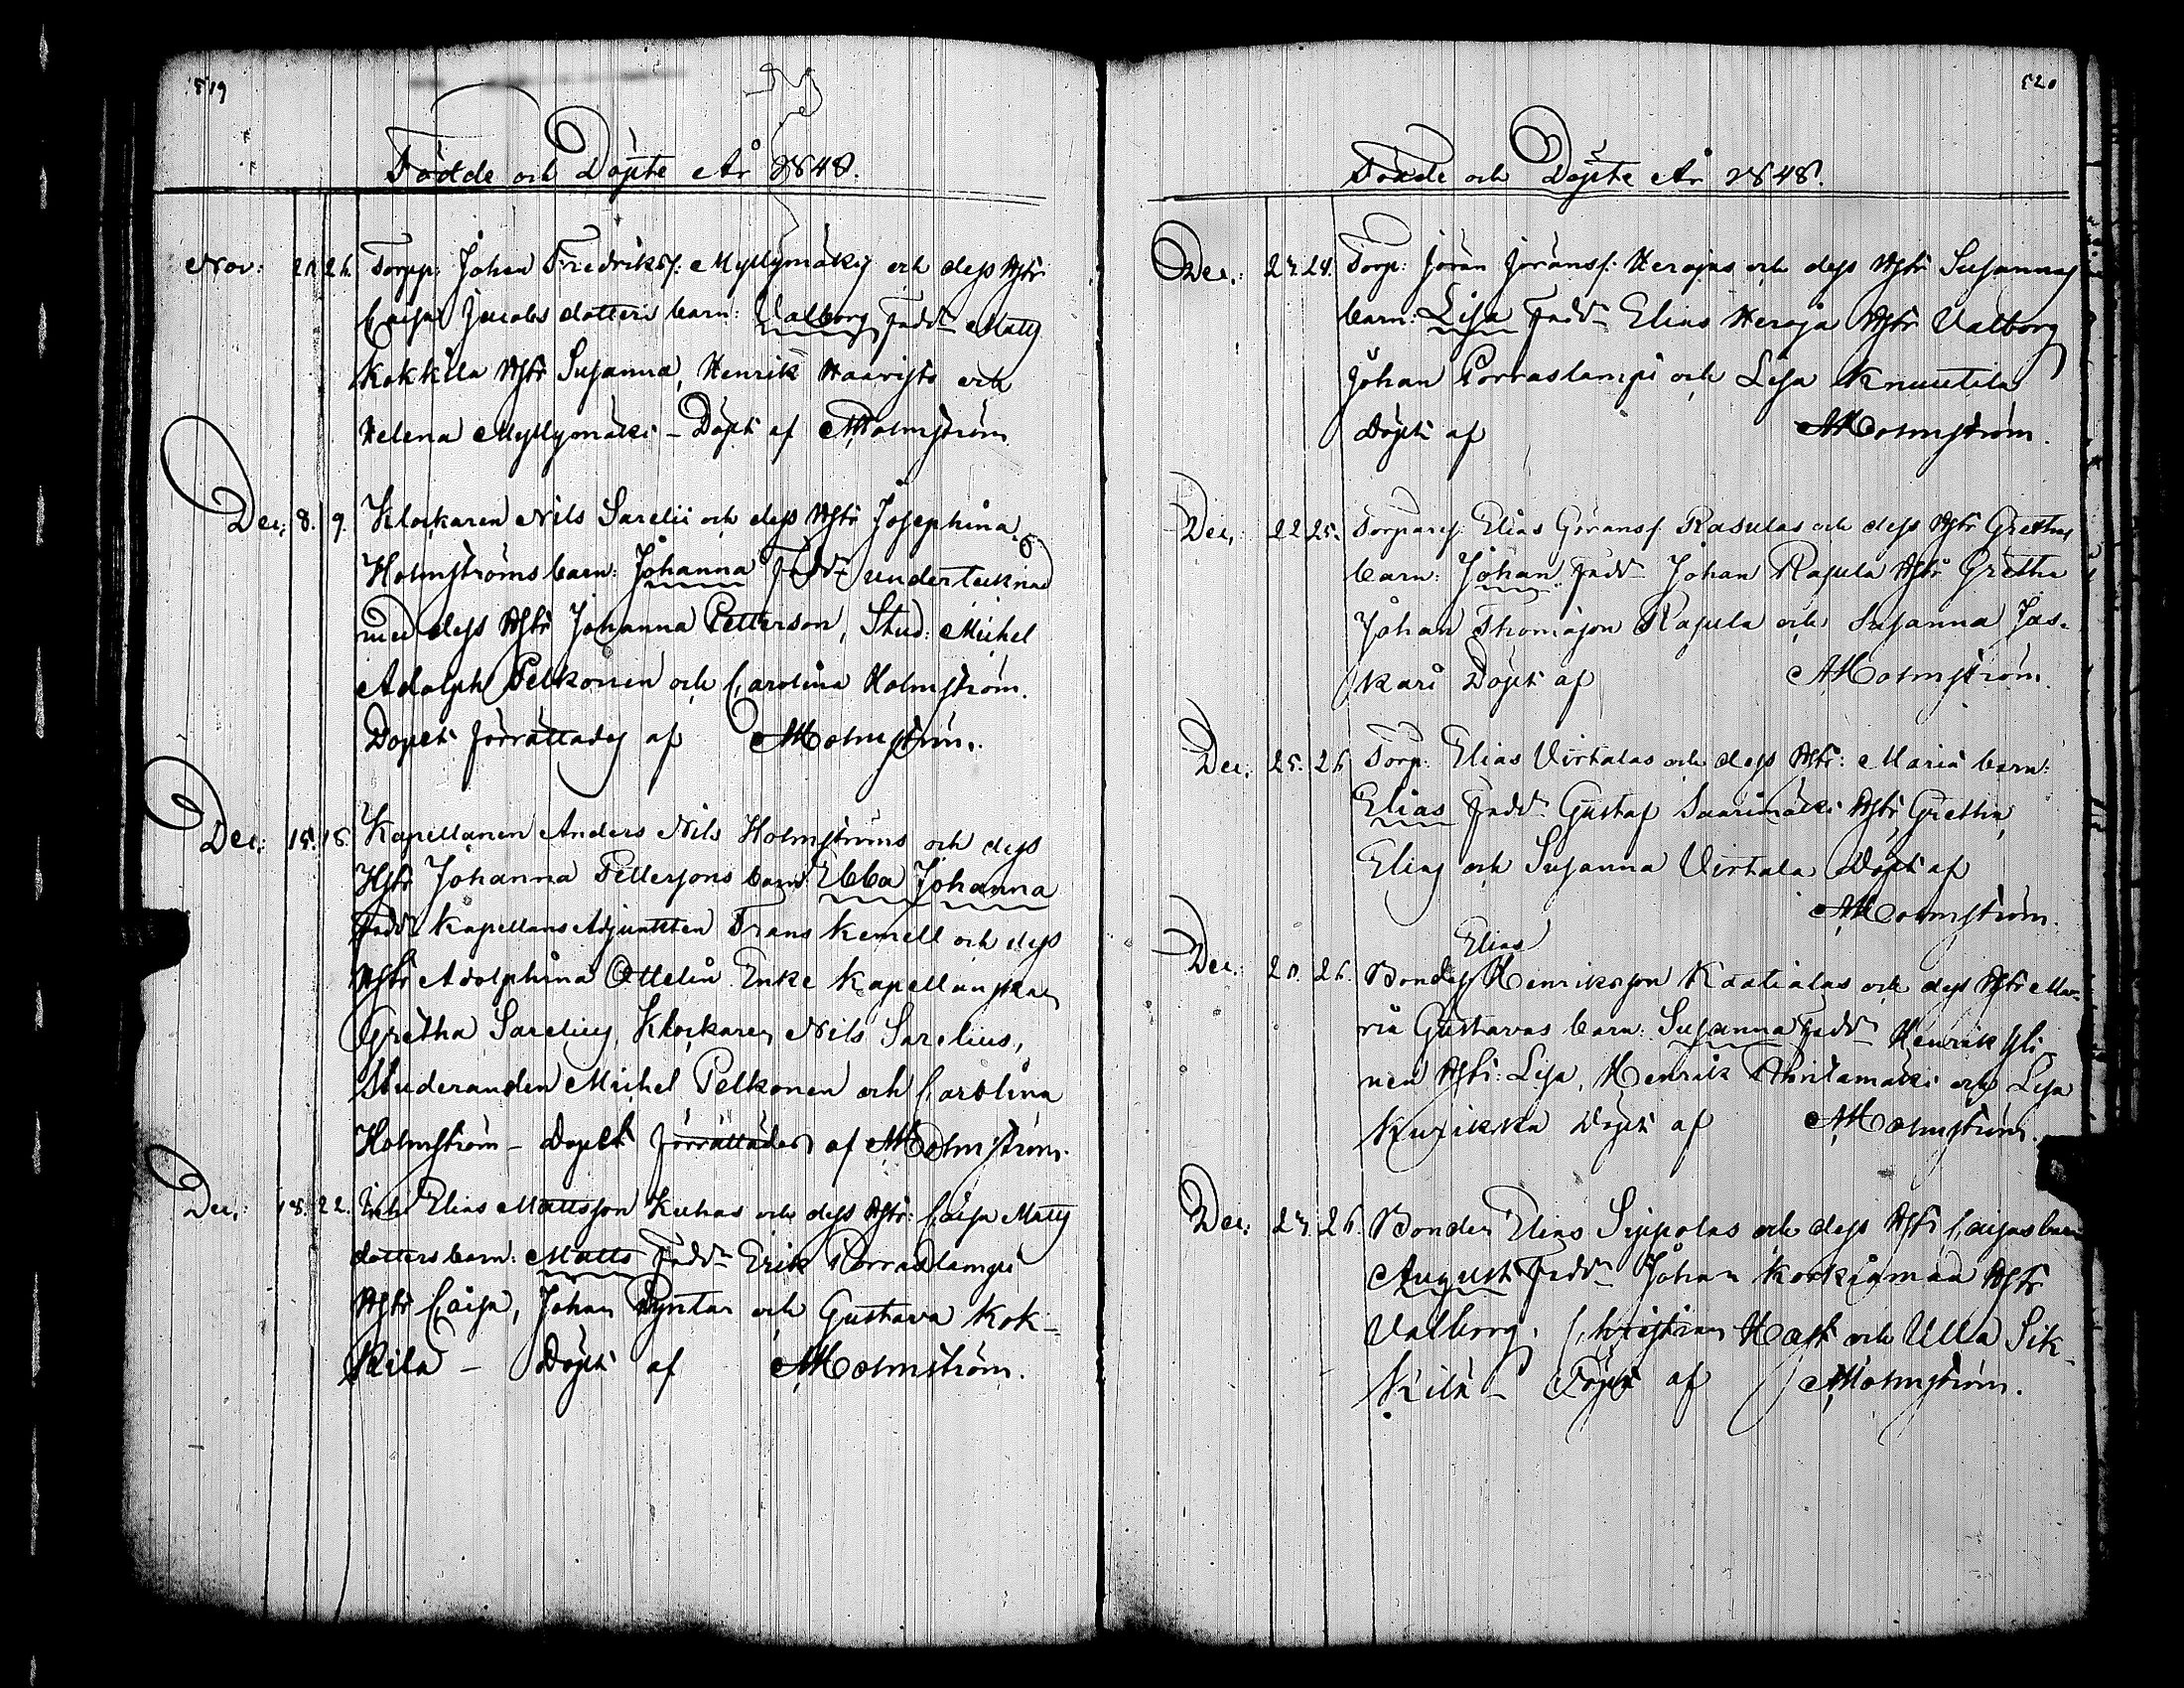 519
Födde och Döpte År 1848.
Nov: 21. 26. Torpp: Johan Fredrikss: Myllymäkis och dess Hstr
Caisa Jacobs dotters barn: Valborg Fadd: Matts
Kokkila Hstr Susanna, Henrik Haaristo och
Helena Myllymäki – Döpt af AHolmström
Dec: 8. 9. Klockaren Nils Sarelii och dess Hstr Josephina
Holmströms barn: Johanna Fadd: undertecknad
med dess Hstr Johanna Petterson, Stud: Michel
Adolph Pelkonen och Carolina Holmström.
Dopet förrättades af AHolmström.
Dec: 15. 18. Kapellanen Anders Nils Holmströms och dess
Hstr Johanna Pettersons barn Ebba Johanna
Fadd: Kapellans Adjunkten Frans Kemell och dess
Hstr Adolphina Ottelin Enke Kapellanskan
Gretha Sarelius, Klockaren Nils Sarelius,
Studeranden Michel Pelkonen och Carolina
Holmström – Dopet förrättades af AHolmström.
Dec: 18. 22. Elias Mattsson Kuhas och dess Hstr: Caisa Matts
dotters barn: Matts Fadd: Erik Porraslampi
Hstr Caisa, Johan Pyntar och Gustava Kok-
kila – Döpt af AHolmström.
520
Födde och Döpte År 1848.
Dec: 24. Torp: Jöran Jöranss: Herajas och dess Hstr Susannas
barn: Lisa Fadd: Elias Heroja Hstr Valborg
Johan Porraslampi och Lisa Knuutila
Döpt af AHolmström.
Dec: 22. 25. Torparen Elias Göranss: Rasulas och dess Hstr Grethas
barn: Johan Fadd: Johan Rasula Hstr Gretha
Johan Thomasson Rasula och Susanna Jas-
kari Döpt af AHolmström.
Dec: 25. 26. Torp: Elias Virtalas och dess Hstr: Maria barn:
Elias Fadd: Gustaf Saarimäki Hstr Gretha,
Elias och Susanna Virtala Döpt af
AHolmström.
Elias
Dec: 21. 26. Bonden Henriksson Kaatialas och dess Hstr Ma-
ria Gustavas barn: Susanna Fadd: Henrik Yli
nen Hstr: Lisa, Henrik och Lisa
Kuzikka Döpt af AHolmström.
Dec: 26. Bonden Elias Sippolas och dess Hstr Caisas barn
August Fadd: Johan Korkiamaa Hstr
Valborg, Christian Hast och Ulla Sik-
kilä – Döpt af AHolmström.